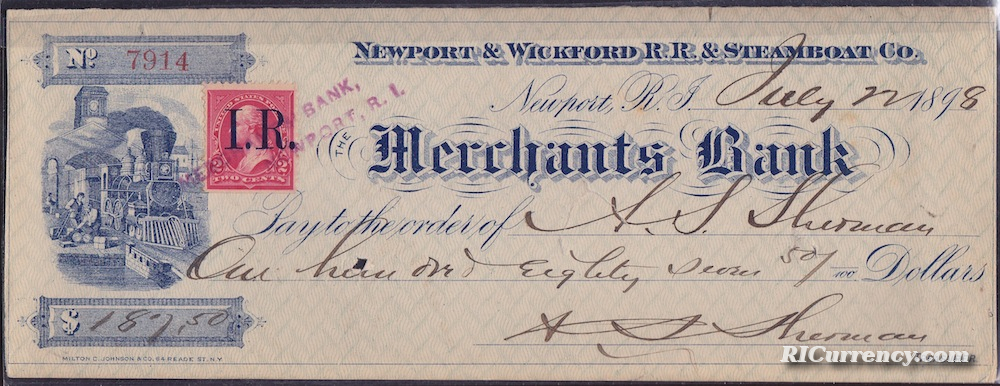 No 7914
NEWPORT & WICKFORD R.R. & STEAMBOAT CO.
Newport, R.I. July 22 1898
BANK,
NPORT, R. I.
I.R.
2 2
TWO CENTS
THE Merchants Bank
Pay to the order of A. S. Sherman
One hundred Eighty seven 50/100 Dollars
$ 187.50
A S Sherman
MILTON C. JOHNSON & CO. 64 READE ST. N.Y.
RICurrency.com